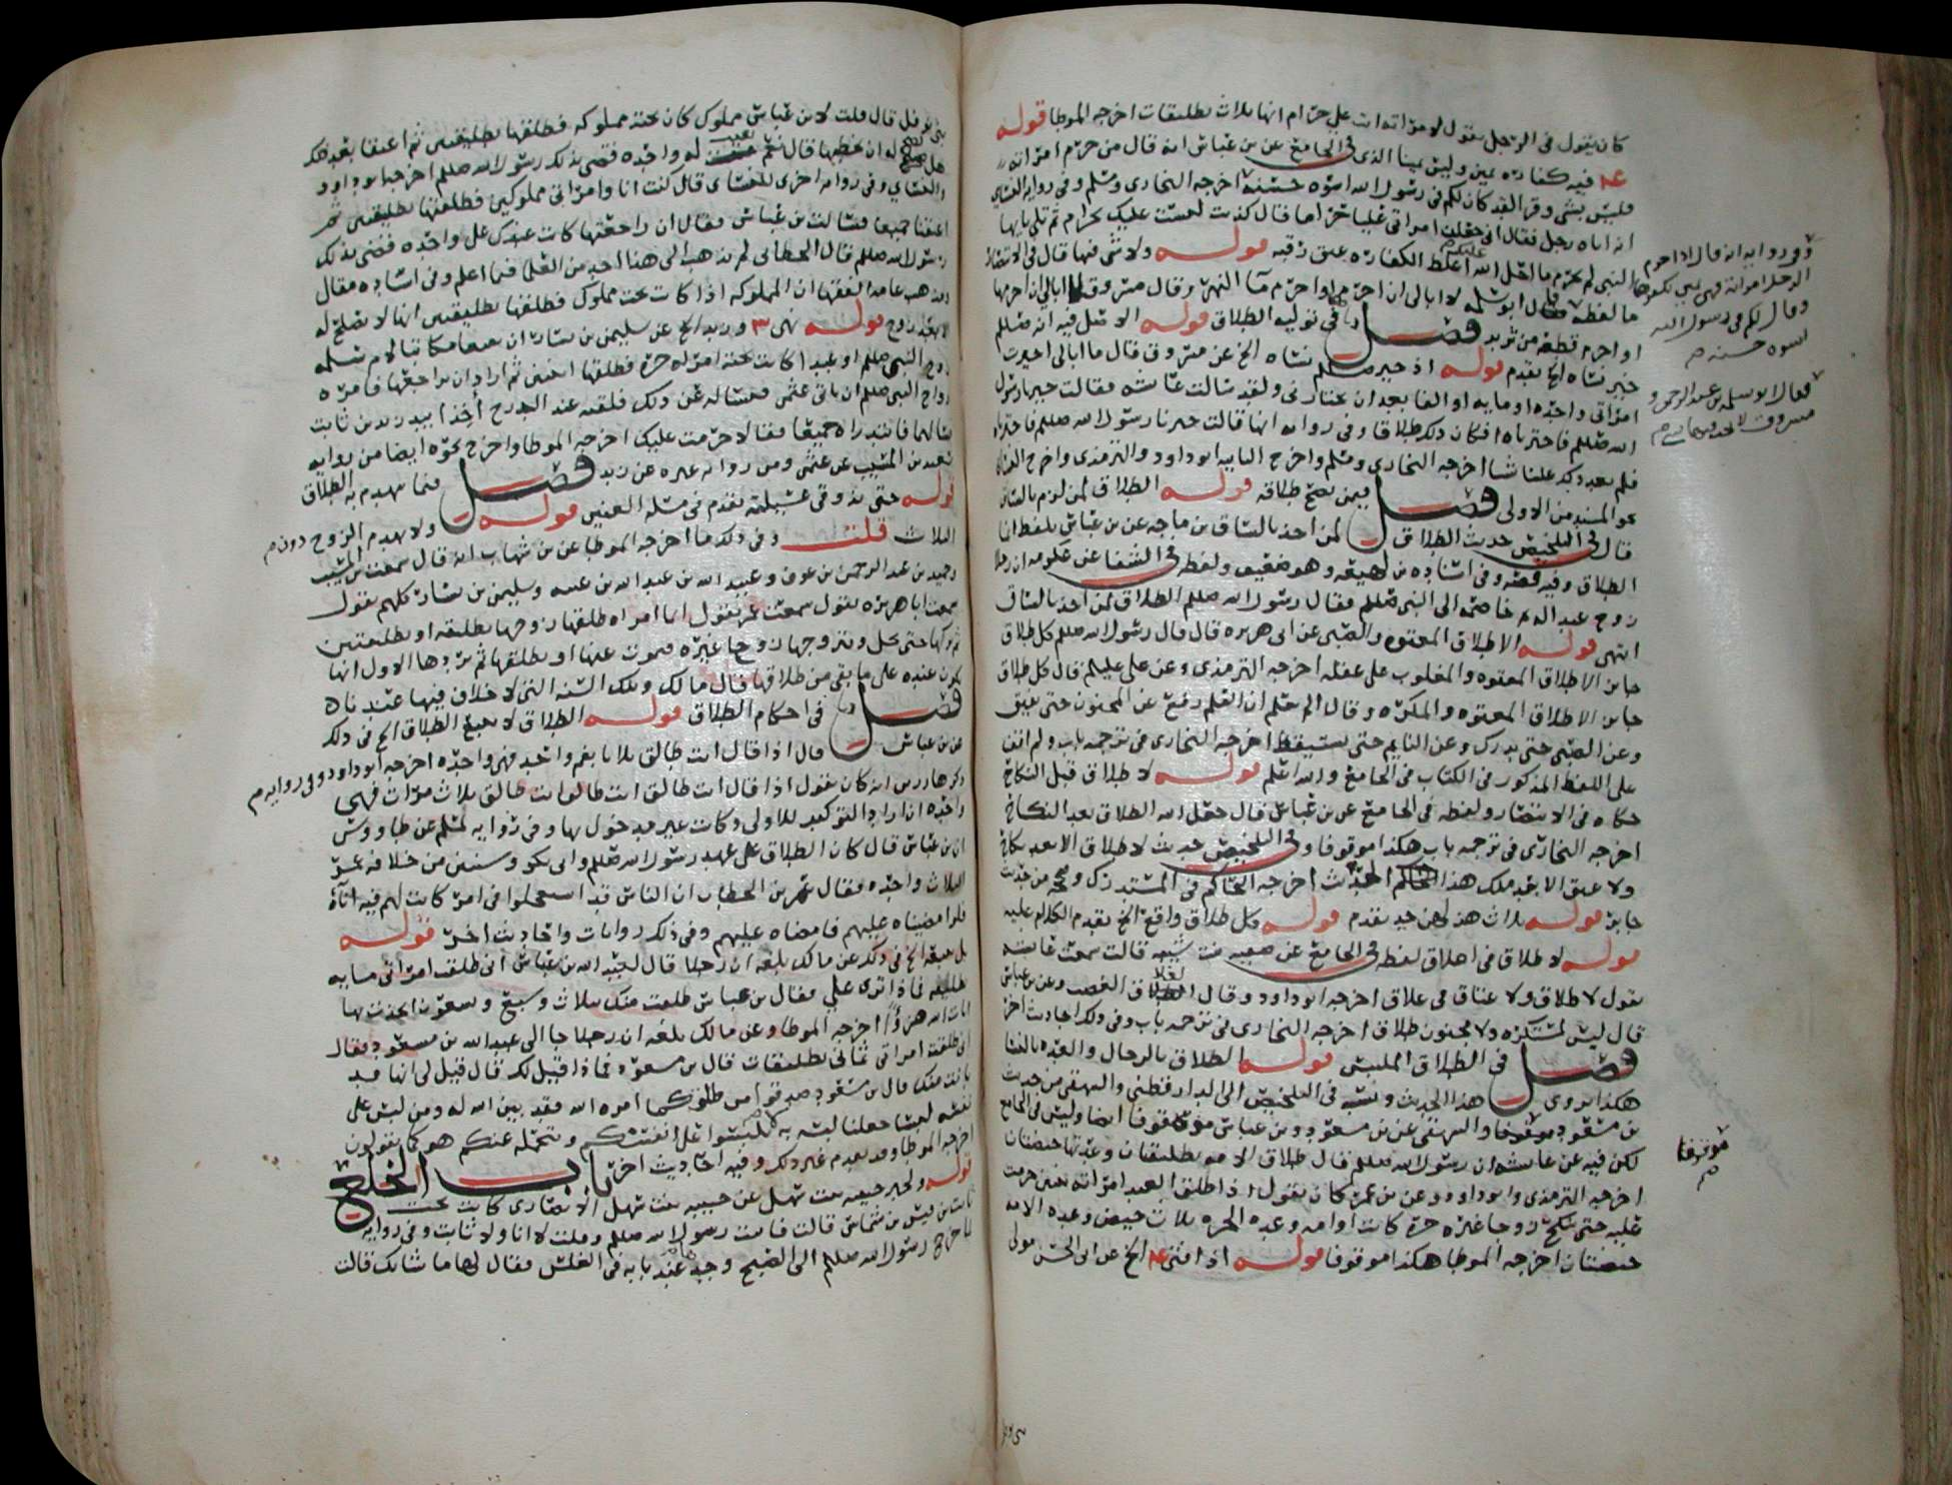 كان يقول في الرجل يقول لامراته انت علي حرام انها ثلاث تطليقات اخرجه الموطا قوله
فيه كفارة يمين وليس يمينا الذي في الجامع عن بن عباس انه قال من حرم امراته
فليس بشي وقرا لقد كان لكم في رسول الله اسوة حسنة اخرجه البخاري ومسلم وفي رواية النسائي
انه اتاه رجل فقال اني جعلت امراتي علي حراما فقال كذبت ليست عليك بحرام ثم تلى يا ايها
النبي لم تحرم ما احل الله عليك اغلظ الكفارة عتق رقبه قوله ولا شي فيها قال في الانتصار
ما لفظه قال ابو سلمة لا ابالي ان احرمها او احرم ماء النهر وقال مسروق ما ابالي ان احرمها
او احرم قطعة من ثريد فصل في توليه الطلاق قوله الاصل فيه انه صللم
خير نساه الخ تقدم قوله اذ خير صللم نساه الخ عن مسروق قال ما ابالي اخيرت
امراتي واحدة او مايه او الفا بعد ان تختارني ولقد سالت عائشه فقالت خيرنا رسول
الله صللم فاخترناه افكان ذلك طلاقا وفي رواية انها قالت خيرنا رسول الله صللم فاخترناه
فلم يعد ذلك علينا شيا اخرجه البخاري ومسلم واخرج الثانيه ابو داود والترمذي واخرج النسائي
نحو المسند من الاولى فصل فيمن يصح طلاقه قوله الطلاق لمن لزم بالساق
قال في التلخيص حديث الطلاق لمن اخذ بالساق بن ماجه عن بن عباس بلفظ انما
الطلاق وفيه قصة وفي اسناده بن لهيعه وهو ضعيف ولفظه في الشفا عن عكرمه ان رجلا
زوج عبده الامة فخاصمه الى النبي صللم فقال رسول الله صللم الطلاق لمن اخذ بالساق
انتهى قوله الا طلاق المعتوه والصبي عن ابي هريره قال قال رسول الله صللم كل طلاق
جايز الا طلاق المعتوه والمغلوب على عقله اخرجه الترمذي وعن علي عليلم قال كل طلاق
جايز الا طلاق المعتوه والمكره وقال الم تعلم ان القلم رفع عن المجنون حتى يفيق
وعن الصبي حتى يدرك وعن النايم حتى يستيقظ اخرجه البخاري في ترجمه باب ولم اقف
على اللفظ المذكور في الكتاب في الجامع والله اعلم قوله لا طلاق قبل النكاح
حكاه في الانتصار ولفظه في الجامع عن بن عباس قال جعل الله الطلاق بعد النكاح
اخرجه البخاري في ترجمه باب هكذا موقوفا وفي التلخيص حديث لا طلاق الا بعد نكاح
ولا عتق الا بعد ملك هذا الحديث اخرجه الحاكم في المستدرك وصححه من حديث
جابر قوله ثلاث هزلهن جد تقدم قوله وكل طلاق واقع الخ تقدم الكلام عليه
قوله لا طلاق في اغلاق لفظه في الجامع عن صفيه بنت شيبه قالت سمعت عائشه
تقول لا طلاق ولا عتاق في غلاق اخرجه ابو داود وقال الغلاق الغضب وعن بن عباس
قال ليس لمستكره ولا مجنون طلاق اخرجه البخاري في ترجمه باب وفي ذلك احاديث اخر
فصل في الطلاق الملبس قوله الطلاق بالرجال والعده بالنسا
هكذا روي هذا الحديث ونسبه في التلخيص الى الدارقطني والبيهقي من حديث
بن مسعود موقوفا والبيهقي عن بن مسعود وبن عباس موقوفا ايضا وليس في الجامع
لكن فيه عن عائشه ان رسول الله صللم قال طلاق الامه تطليقتان وعدتها حيضتان
اخرجه الترمذي وابو داود وعن بن عمر كان يقول اذا طلق العبد امراته ثنتين حرمت
عليه حتى تنكح زوجا غيره حرة كانت او امه وعدة الحره ثلاث حيض وعدة الامه
حيضتان اخرجه الموطا هكذا موقوفا قوله اذ افتى الخ عن ابي الحسن مولى
وفي رواية انه قال اذا حرم
الرجل امراته فهي يمين يكفرها
وقال لكم في رسول الله
اسوة حسنة م
موقوفا
م
بني نوفل قال قلت لابن عباس مملوك كان تحته مملوكه فطلقها تطليقتين ثم اعتقا بعد هل
يصلح له ان يخطبها قال نعم بقيت له واحدة قضى بذلك رسول الله صللم اخرجه ابو داود
والنسائي وفي رواية اخرى للنسائي قال كنت انا وامراتي مملوكين فطلقتها تطليقتين ثم
اعتقنا جميعا فسالت بن عباس فقال ان راجعتها كانت عندك على واحدة قضى بذلك
رسول الله صللم قال الخطابي لم يذهب الى هذا احد من العلما فيما اعلم وفي اسناده مقال
ومذهب عامة الفقها ان المملوكه اذا كانت تحت مملوك فطلقها تطليقتين انها لا تصلح له
الا بعد زوج قوله نهى وزيد الخ عن سليمن بن يسار ان نفيعا مكاتبا لام سلمه
زوج النبي صللم او عبدا كانت تحته امراة حرة فطلقها اثنتين ثم اراد ان يراجعها فامره
ازواج النبي صللم ان ياتي عثمن فيساله عن ذلك فلقيه عند الدرج اخذا بيد زيد بن ثابت
فسالهما فابتدراه جميعا فقالا حرمت عليك اخرجه الموطا واخرج نحوه ايضا من رواية
سعيد بن المسيب عن عثمن ومن رواية غيره عن زيد فصل فيما يهدم به الطلاق
قوله حتى يذوق عسيلته تقدم في مسلة العنين قوله ولا يهدم الزوج دون م
الثلاث قلت وفي ذلك ما اخرجه الموطا عن بن شهاب انه قال سمعت بن المسيب
وحميد بن عبد الرحمن بن عوف وعبيد الله بن عبد الله بن عتبه وسليمن بن يسار كلهم يقول
سمعت ابا هريره يقول سمعت عمر يقول ايما امراة طلقها زوجها تطليقه او تطليقتين
ثم تركها حتى تحل وتتزوجها زوجا غيره فيموت عنها او يطلقها ثم يردها الاول انها
تكون عنده على ما بقي من طلاقها قال مالك وتلك السنة التي لا خلاف فيها عندنا
فصل في احكام الطلاق قوله الطلاق لا يتبع الطلاق الخ في ذلك
عن بن عباس قال اذا قال انت طالق ثلاثا بفم واحد فهي واحدة اخرجه ابو داود وفي رواية م
ذكرها رزين انه كان يقول اذا قال انت طالق انت طالق انت طالق ثلاث مرات فهي
واحدة ان اراد التوكيد للاولى وكانت غير مدخول بها وفي رواية لمسلم عن طاووس
ان بن عباس قال كان الطلاق على عهد رسول الله صللم وابي بكر وسنتين من خلافة عمر
الثلاث واحدة فقال عمر بن الخطاب ان الناس قد استعجلوا في امر كانت لهم فيه اناة
فلو امضيناه عليهم فامضاه عليهم وفي ذلك روايات واحاديث اخر قوله
الخ في ذلك عن مالك بلغه ان رجلا قال لعبد الله بن عباس اني طلقت امراتي مايه
تطليقه فماذا ترى علي فقال بن عباس طلقت منك بثلاث وسبع وتسعون اتخذت بها
ايات الله هزؤا اخرجه الموطا وعن مالك بلغه ان رجلا جا الى عبد الله بن مسعود فقال
اني طلقت امراتي ثماني تطليقات قال بن مسعود فماذا قيل لك قال قيل لي انها قد
بانت منك قال بن مسعود صدقوا من طلق كما امره الله فقد بين الله له ومن لبس على
نفسه لبسا جعلنا لبسه به لا تلبسوا على انفسكم ونتحمله عنكم هو كما يقولون
اخرجه الموطا وقد تقدم غير ذلك وفيه احاديث اخر باب الخلع
قوله ولخبر حبيبه بنت سهل عن حبيبه بنت سهل الانصاري كانت تحت
ثابت بن قيس بن شماس قالت فاتيت رسول الله صللم وقلت لا انا ولا ثابت وفي رواية
خرج رسول الله صللم الى الصبح وجدها عند بابه في الغلس فقال لها ما شانك قالت